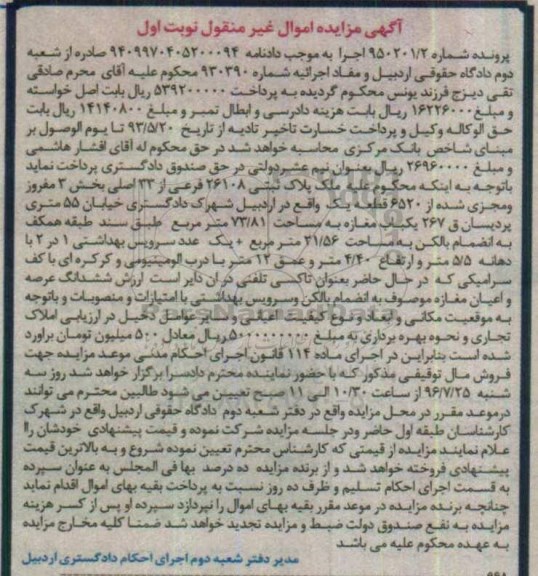 آگهی مزایده اموال غیر منقول نوبت اول
پرونده شماره ۹۵۰۲۰۱/۲ اجرا به موجب دادنامه ۹۴۰۹۹۷۰۴۰۵۲۰۰۰۹۴ صادره از شعبه
دوم دادگاه حقوقی اردبیل و مفاد اجرائیه شماره ۹۳۰۳۹۰ محکوم علیه آقای محرم صادقی
تقی دیزج فرزند یونس محکوم گردیده به پرداخت ۵۳۹۲۰۰۰۰۰ ریال بابت اصل خواسته
و مبلغ ۱۶۲۲۶۰۰۰ ریال بابت هزینه دادرسی و ابطال تمبر و مبلغ ۱۴۱۴۰۸۰۰ ریال بابت
حق الوکاله وکیل و پرداخت خسارت تاخیر تادیه از تاریخ ۹۳/۵/۲۰ تا یوم الوصول بر
مبنای شاخص بانک مرکزی محاسبه خواهد شد در حق محکوم له آقای افشار هاشمی
و مبلغ ۲۶۹۶۰۰۰۰ ریال بعنوان نیم عشر دولتی در حق صندوق دادگستری پرداخت نماید
باتوجه به اینکه محکوم علیه ملک پلاک ثبتی ۲۶۱۰۸ فرعی از ۲۳ اصلی بخش ۳ مفروز
ومجزی شده از ۶۵۲۰ قطعه یک واقع در اردبیل شهرک دادگستری خیابان ۵۵ متری
پردیسان ق ۲۶۷ یکباب مغازه به مساحت ۷۳/۸۱ متر مربع طبق سند طبقه همکف
به انضمام بالکن به مساحت ۲۱/۵۶ متر مربع + یک عدد سرویس بهداشتی ۱ در ۲ با
دهانه ۵/۵ متر و ارتفاع ۴/۴۰ متر و عمق ۱۲ متر با درب آلومینیومی و کرکره ای با کف
سرامیکی که در حال حاضر بعنوان تاکسی تلفنی در آن دایر است ارزش ششدانگ عرصه
و اعیان مغازه موصوف به انضمام بالکن وسرویس بهداشتی با امتیازات و منصوبات و باتوجه
به موقعیت مکانی و ابعاد و نوع کیفیت اعیانی و سایر عوامل دخیل در ارزیابی املاک
تجاری و نحوه بهره برداری به مبلغ ۵۰۰۰۰۰۰۰۰۰ ریال معادل ۵۰۰ میلیون تومان براورد
شده است بنابراین در اجرای ماده ۱۱۴ قانون اجرای احکام مدنی موعد مزایده جهت
فروش مال توقیفی مذکور که با حضور نماینده محترم دادسرا برگزار خواهد شد روز سه
شنبه ۹۶/۷/۲۵ از ساعت ۱۰/۳۰ الی ۱۱ صبح تعیین می شود طالبین محترم می توانند
درموعد مقرر در محل مزایده واقع در دفتر شعبه دوم دادگاه حقوقی اردبیل واقع در شهرک
کارشناسان طبقه اول حاضر ودر جلسه مزایده شرکت نموده و قیمت پیشنهادی خودشان را
علام نمایند مزایده از قیمتی که کارشناس محترم تعیین نموده شروع و به بالاترین قیمت
پیشنهادی فروخته خواهد شد و از برنده مزایده ده درصد بها فی المجلس به عنوان سپرده
به قسمت اجرای احکام تسلیم و ظرف ده روز نسبت به پرداخت بقیه بهای اموال اقدام نماید
چنانچه برنده مزایده در موعد مقرر بقیه بهای اموال را نپردازد سپرده او پس از کسر هزینه
مزایده به نفع صندوق دولت ضبط و مزایده تجدید خواهد شد ضمنا کلیه مخارج مزایده
به عهده محکوم علیه می باشد
مدیر دفتر شعبه دوم اجرای احکام دادگستری اردبیل